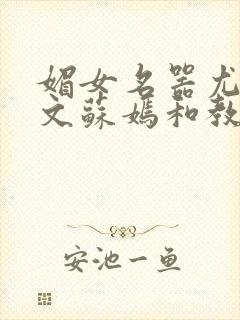 媚女名器尤
文蘇媽和教
安池一鱼